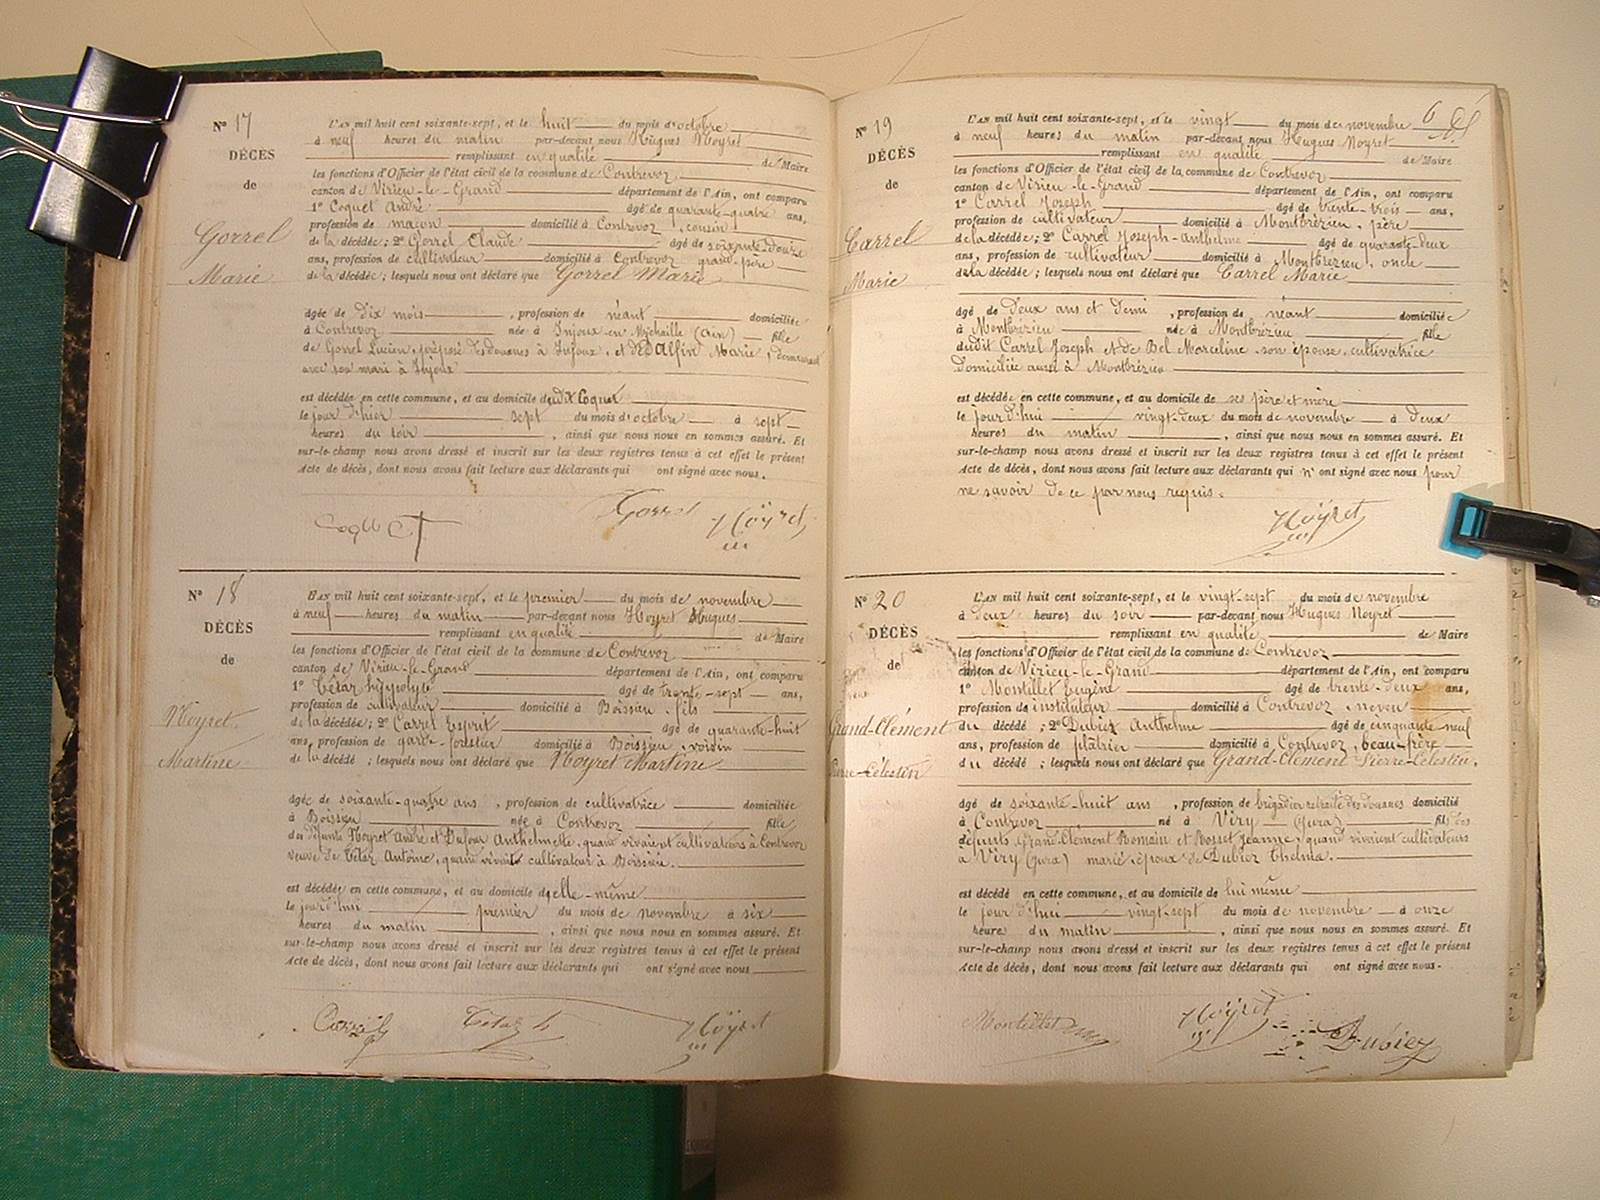 N° 17
DÉCÈS
de
Gorrel
Marie
L'AN mil huit cent soixante-sept, et le huit du mois d'octobre
à neuf heures du matin par-devant nous Hugues Noyret
remplissant en qualité de Maire
les fonctions d'Officier de l'état civil de la commune de Contrevoz
canton de Virieu-le-Grand département de l'Ain, ont comparu
1° Coquet André âgé de quarante-quatre ans,
profession de maçon domicilié à Contrevoz, cousin
de la décédée; 2° Gorrel Claude âgé de soixante-douze
ans, profession de cultivateur domicilié à Contrevoz grand-père
de la décédée; lesquels nous ont déclaré que Gorrel Marie
âgée de dix mois, profession de néant domiciliée
à Contrevoz née à Injoux-en-Michaille (Ain) fille
de Gorrel Lucien, préposé des douanes à Injoux, et de Dalfin Marie, demeurant
avec son mari à Injoux
est décédée en cette commune, et au domicile dudix Coquet
le jour d'hier sept du mois d'octobre à sept
heures du soir, ainsi que nous nous en sommes assuré. Et
sur-le-champ nous avons dressé et inscrit sur les deux registres tenus à cet effet le présent
Acte de décès, dont nous avons fait lecture aux déclarants qui ont signé avec nous.
Coquet Gorrel Noyret
N° 18
DÉCÈS
de
Noyret
Martine
L'AN mil huit cent soixante-sept, et le premier du mois de novembre
à neuf heures du matin par-devant nous Noyret Hugues
remplissant en qualité de Maire
les fonctions d'Officier de l'état civil de la commune de Contrevoz
canton de Virieu-le-Grand département de l'Ain, ont comparu
1° Tétaz hippolyte âgé de trente-sept ans,
profession de cultivateur domicilié à Boissieu, fils
de la décédée; 2° Carrel Esprit âgé de quarante-huit
ans, profession de garde-forestier domicilié à Boissieu, voisin
de la décédé; lesquels nous ont déclaré que Noyret Martine
âgée de soixante-quatre ans, profession de cultivatrice domiciliée
à Boissieu née à Contrevoz fille
des défunts Noyret André et Dufour Anthelmette, quand vivaient cultivateurs à Contrevoz
veuve de Tétaz Antoine, quand vivait cultivateur à Boissieu.
est décédée en cette commune, et au domicile d'elle-même
le jourd'hui premier du mois de novembre à six
heures du matin, ainsi que nous nous en sommes assuré. Et
sur-le-champ nous avons dressé et inscrit sur les deux registres tenus à cet effet le présent
Acte de décès, dont nous avons fait lecture aux déclarants qui ont signé avec nous
Carrel Tétaz h Noyret
6
N° 19
DÉCÈS
de
Carrel
Marie
L'AN mil huit cent soixante-sept, et le vingt du mois de novembre
à neuf heures du matin par-devant nous Hugues Noyret
remplissant en qualité de Maire
les fonctions d'Officier de l'état civil de la commune de Contrevoz
canton de Virieu-le-Grand département de l'Ain, ont comparu
1° Carrel Joseph âgé de trente-trois ans,
profession de cultivateur domicilié à Montbrézieu, père
de la décédée; 2° Carrel Joseph-Anthelme âgé de quarante-deux
ans, profession de cultivateur domicilié à Montbrézieu, oncle
de la décédée; lesquels nous ont déclaré que Carrel Marie
âgé de Deux ans et demi, profession de néant domiciliée
à Montbrézieu née à Montbrézieu fille
dudit Carrel Joseph et de Bel Marceline son épouse, cultivatrice
domiciliée aussi à Montbrézieu
est décédée en cette commune, et au domicile de ses père et mère
le jourd'hui vingt-deux du mois de novembre à deux
heures du matin, ainsi que nous nous en sommes assuré. Et
sur-le-champ nous avons dressé et inscrit sur les deux registres tenus à cet effet le présent
Acte de décès, dont nous avons fait lecture aux déclarants qui n'ont signé avec nous pour
ne savoir de ce par nous requis.
Noyret
N° 20
DÉCÈS
de
Grand-Clément
Pierre-Célestin
L'AN mil huit cent soixante-sept, et le vingt-sept du mois de novembre
à deux heures du soir par-devant nous Hugues Noyret
remplissant en qualité de Maire
les fonctions d'Officier de l'état civil de la commune de Contrevoz
canton de Virieu-le-Grand département de l'Ain, ont comparu
1° Montillet Eugène âgé de trente-deux ans,
profession de instituteur domicilié à Contrevoz, neveu
du décédé; 2° Dubiez Anthelme âgé de cinquante neuf
ans, profession de plâtrier domicilié à Contrevoz, beau-frère
du décédé; lesquels nous ont déclaré que Grand-Clément Pierre-Célestin,
âgé de soixante-huit ans, profession de brigadier retraité des douanes domicilié
à Contrevoz né à Viry (Jura) fils des
défunts Grand-Clément Romain et Rosset Jeanne, quand vivaient cultivateurs
à Viry (Jura) marié époux de Dubiez Thelma.
est décédé en cette commune, et au domicile de lui même
le jour d'hui vingt-sept du mois de novembre à onze
heures du matin, ainsi que nous nous en sommes assuré. Et
sur-le-champ nous avons dressé et inscrit sur les deux registres tenus à cet effet le présent
Acte de décès, dont nous avons fait lecture aux déclarants qui ont signé avec nous.
Montillet Noyret Dubiez